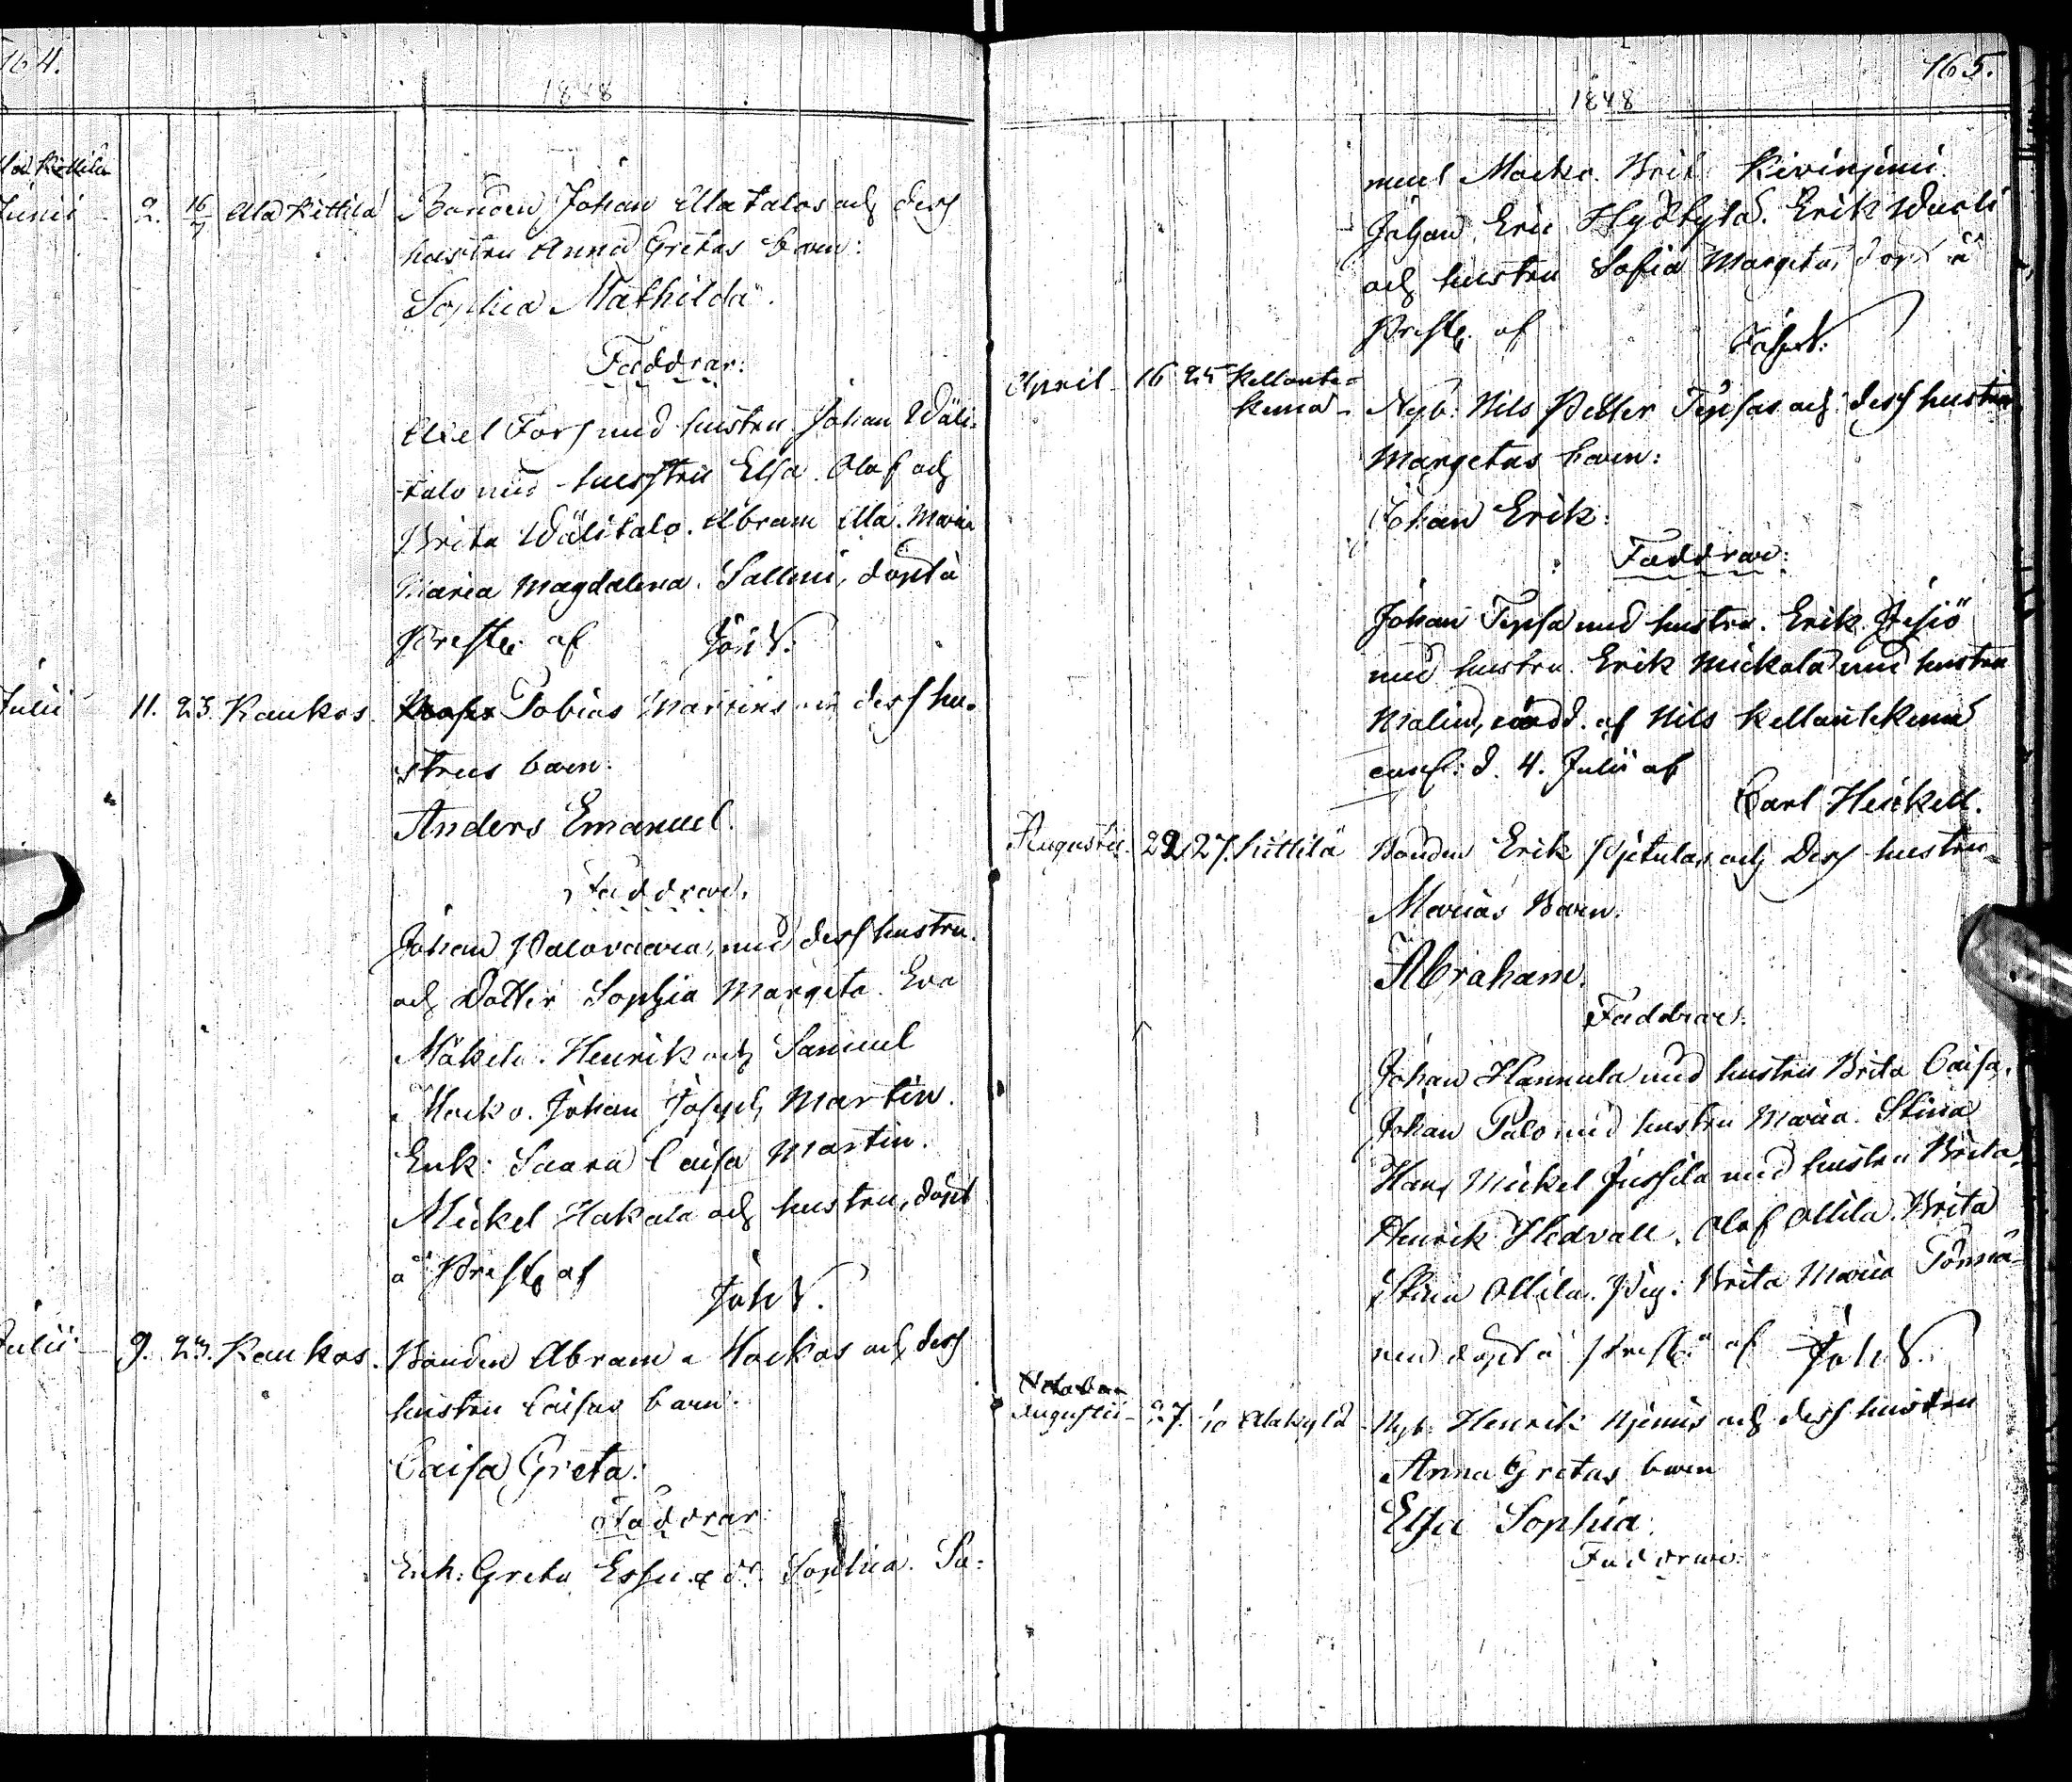 164.
1848
Ala Kittila
Junii 2. 16/7 Ala Kittilä Bonden Johan Alatalos och dess
hustru Anna Gretas barn:
Sophia Mathilda.
Faddrar:
Axel Fors med hustru. Johan Wäli-
talo med hustru Elsa. Olof och
Brita Wälitalo. Abram Ala. Maria
Maria Magdalena Salmi, döpt å
Prestg. af Joh V.
Julii 11. 23. Kaukos. Tobias Martins och dess hu-
strus barn:
Anders Emanuel.
Faddrar.
Johan Palovaara, med dess hustru
och Dotter Sophia Margeta. Eva
Mäkelä. Henrik och Samuel
Kocko. Johan Joseph Martin.
Enk: Saara Caisa Martin.
Mickel Hakala och hustru, döpt
å Prestg. af Joh V.
Julii 9. 23. Kaukos. Bonden Abram Kockos och dess
hustru Caisas barn:
Caisa Greta:
Faddrar
Enk: Greta Sophia. Sa=
165.
1848
muel Kocko. Brit. Kivinjemi
Johan Eric Hyötylä. Erik Wuoli
och hustru Sofia Margeta, döpt å
Prestg. af Joh V.
April 16 25 Kellonte-
kemä Nyb: Nils Petter Tepsas och dess hustru
Margetas barn:
Johan Erik:
Faddrar:
Johan Tepsa med hustru. Erik Jesiö
med hustru. Erik Mickola med hustru
Malin, nödd. af Nils Kellontekemä
conf: d. 4. Julii af
Carl Heickell.
Augusti. 22 27. Kittilä Bonden Erik Pjetulas och dess hustru
Marias Barn.
Abraham.
Faddrar:
Johan Hannula med hustru Brita Caisa.
Johan Palo med hustru Maria. Stina
Hans Mickel Jussila med hustru Brita.
Henrik Hedvall. Olof Ollila. Brita
Stina Ollila. Pig: Brita Maria Törmä-
nen döpt å Prestg. af Joh V.
Augustii 27. 10 Alakylä Nyb. Henrik Njemis och dess hustru
Anna Gretas barn
Elsa Sophia:
Faddrar: